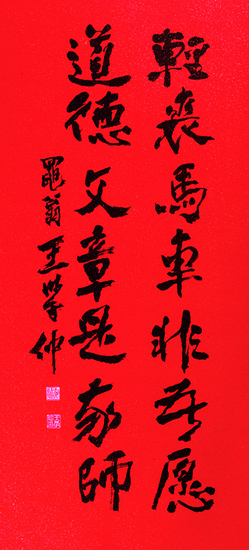 輕裘馬車非吾愿
道德文章是我師
黽翁王學仲